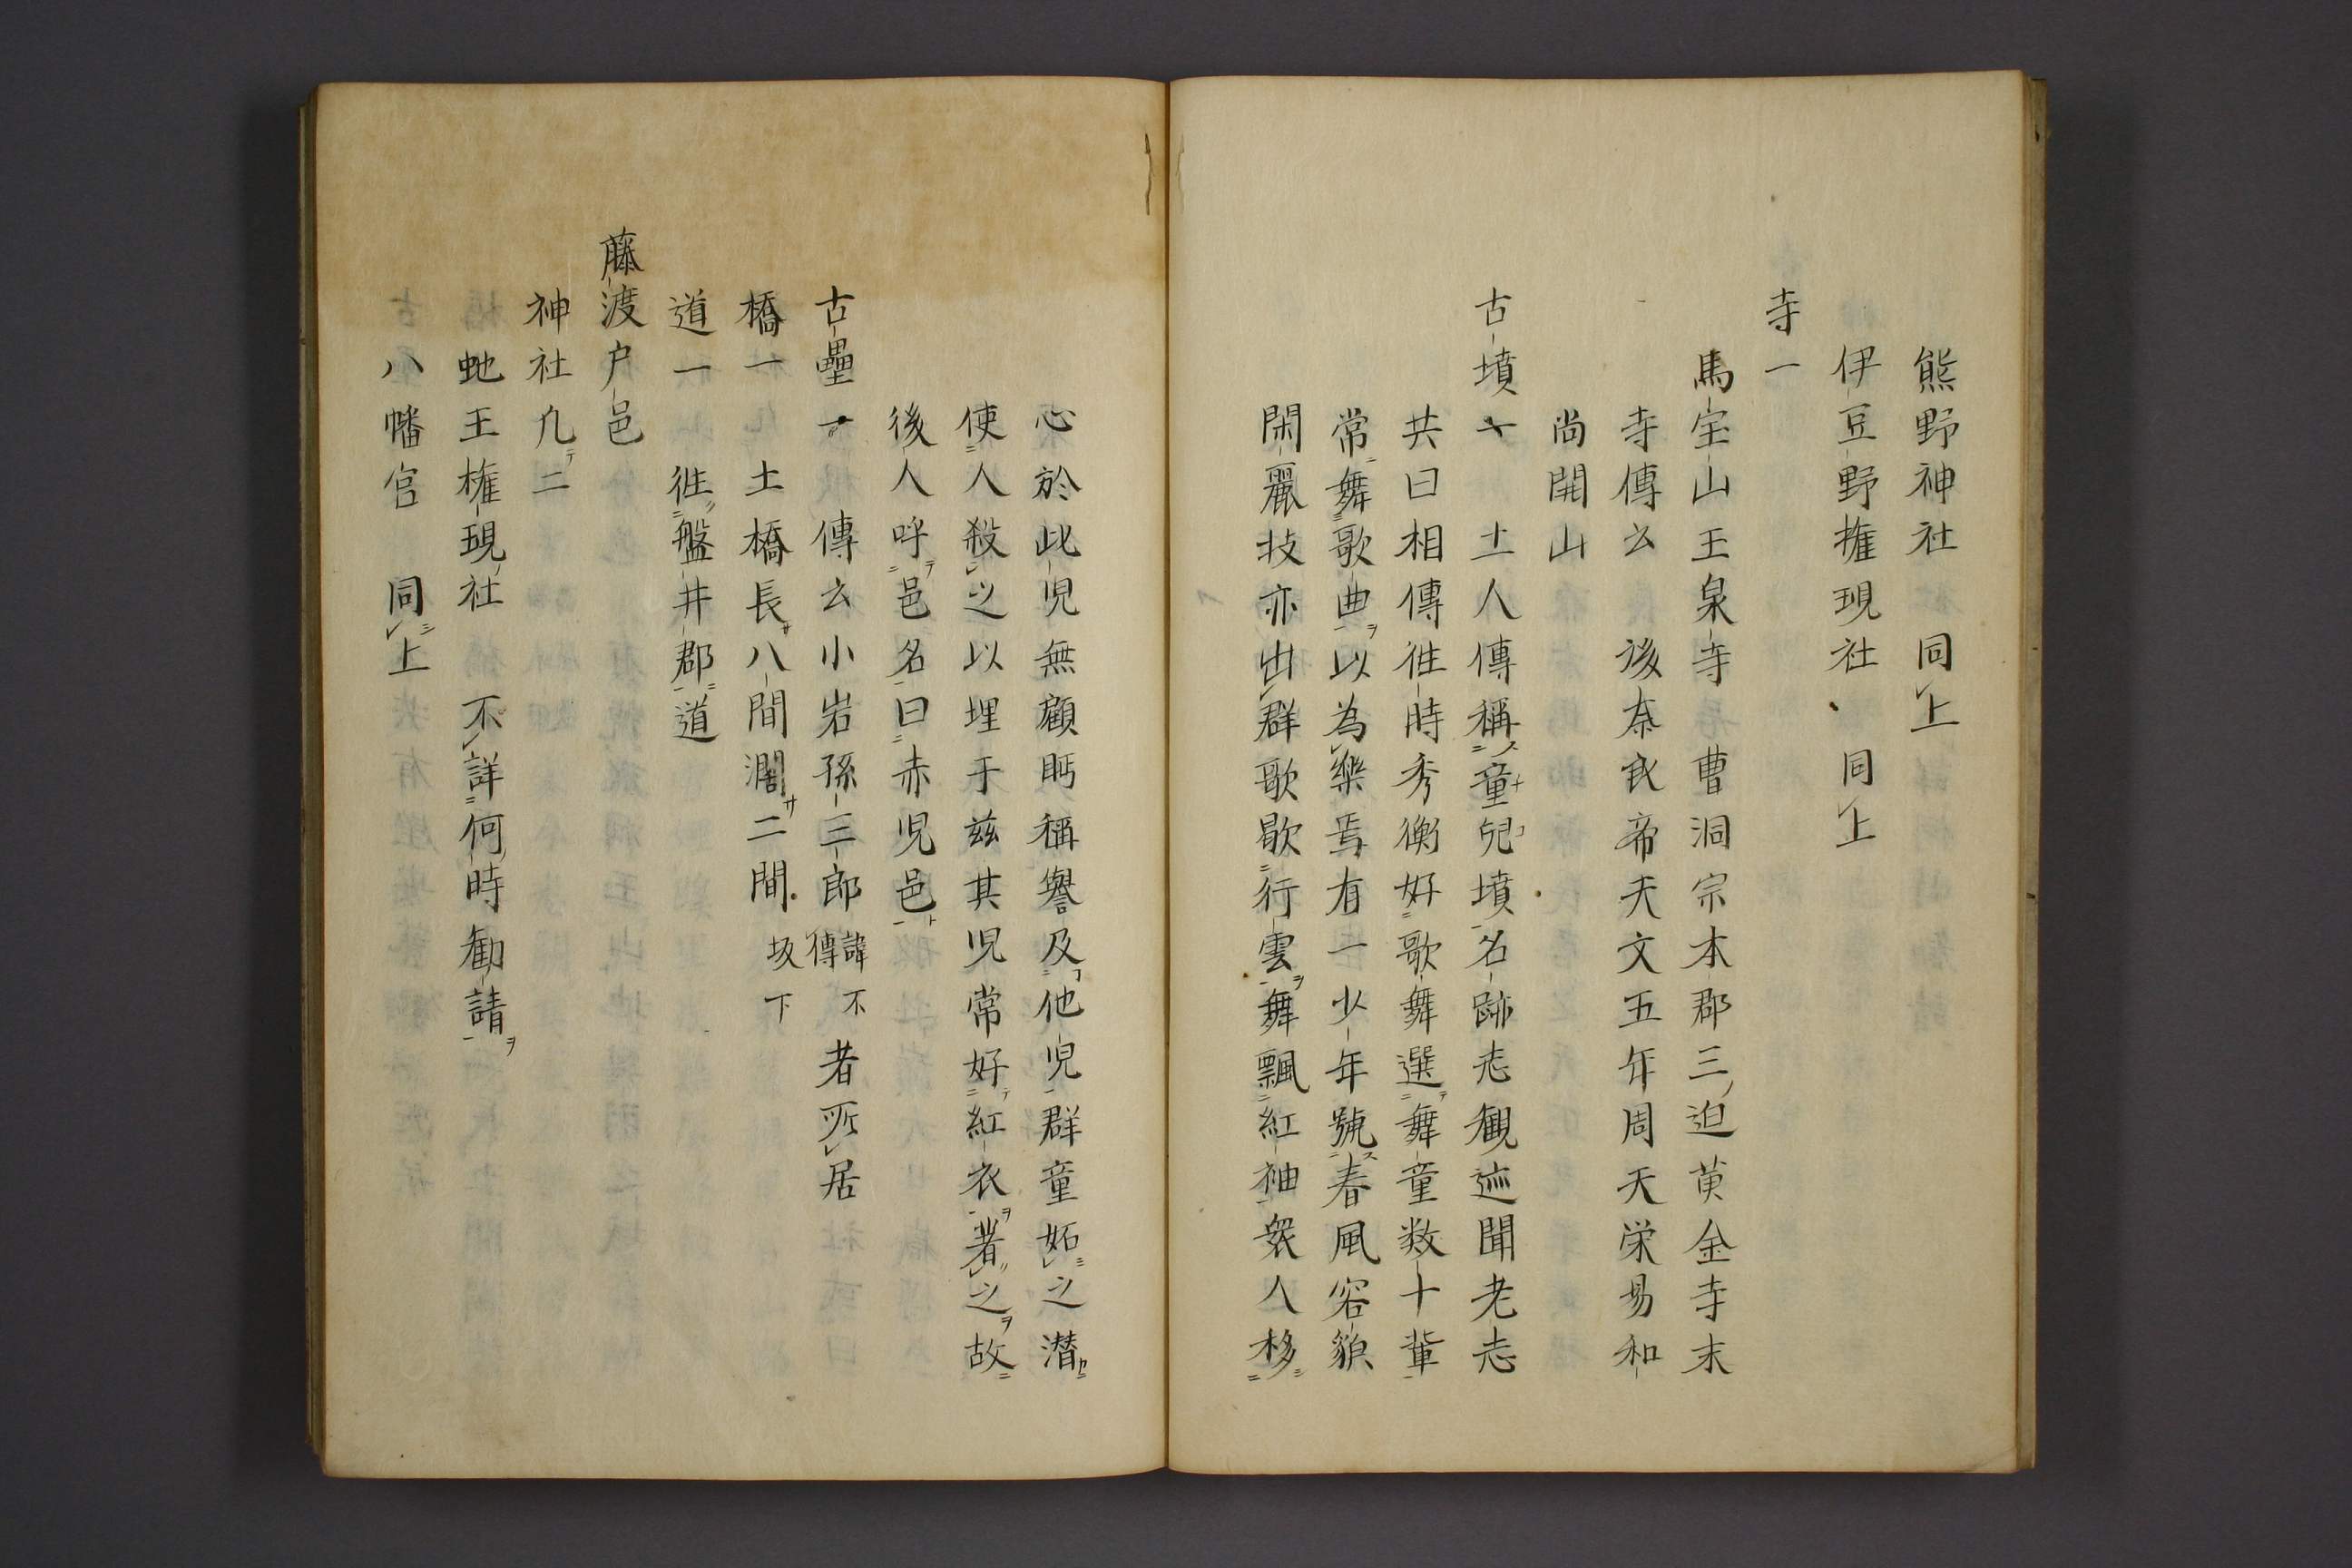 熊野神社　同上
伊豆野権現社　同上
寺一
馬宝山王泉寺　曹洞宗本郡三迫黄金寺末
寺傳云　後奈良帝天文五年周天栄易和
尚開山
古墳一　土人傳稱童兒墳名跡志觀迹聞老志
共曰相傳徃時秀衡好歌舞選舞童数十輩
常舞歌曲以為樂焉有一少年號春風容貌
閑麗技亦出群歌歇行雲舞飄紅袖衆人移
心於此児無顧眄稱譽及他児群童妬之潜
使人殺之以埋于茲其児常好紅衣著之故
後人呼邑名曰赤児邑
古壘一　傳云小岩孫三郎諱不傳者所居
橋一　土橋長八間濶二間坂下
道一　徃盤井郡道
藤渡戸邑
神社九二
虵王権現社　不詳何時勸請
八幡宮　同上